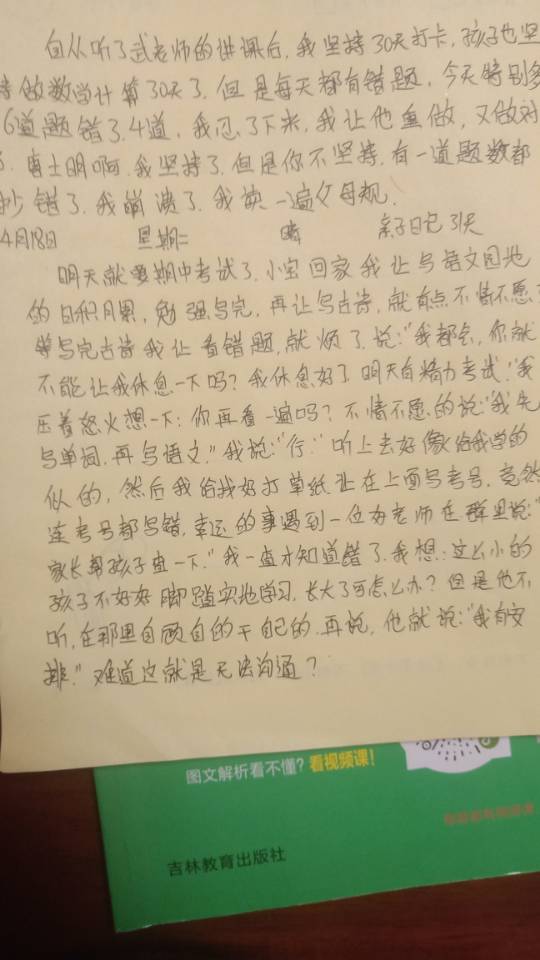 自从听了武老师的讲课后,我坚持30天打卡,孩子也坚
持做数学计算30天了.但是每天都有错题,今天特别多
6道题错了4道,我忍了下来,我让他重做,又做对
了.博士明啊.我坚持了.但是你不坚持.有一道题数都
抄错了.我崩溃了.我读一遍父母规.
4月18日 星期二 晴 亲子日记 31天
明天就要期中考试了.小宝回家我让写语文园地
的日积月累,勉强写完,再让写古诗,就有点不情不愿
等写完古诗我让看错题,就烦了.说:"我都会,你就
不能让我休息一下吗?我休息好了明天有精力考试."我
压着怒火想一下:你再看一遍吗?不情不愿的说:"我先
写单词.再写语文."我说:"行."听上去好像给我学的
似的,然后我给找好打草纸让在上面写考号.竟然
连考号都写错.幸运的事遇到一位好老师在群里说:"
家长帮孩子查一下."我一查才知道错了.我想:这么小的
孩子不好好脚踏实地学习,长大了可怎么办?但是他不
听,在那里自顾自的干自己的.再说,他就说:"我有安
排."难道这就是无法沟通?
图文解析看不懂?看视频课!
吉林教育出版社